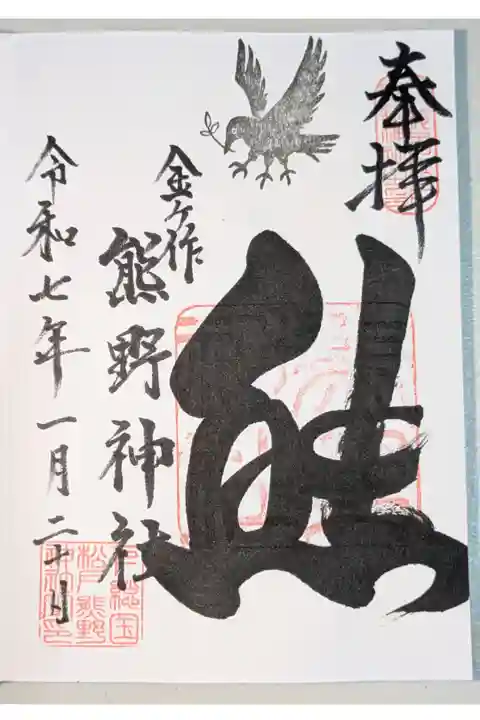 奉拝
熊
金ヶ作
熊野神社
令和七年一月二十日
下総国
松戸熊野